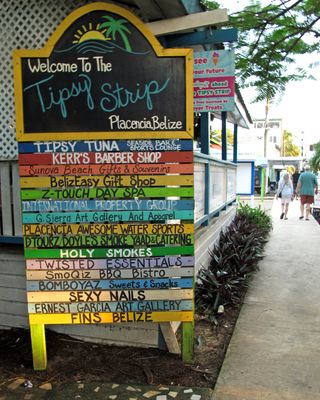 Welcome To The
Tipsy Strip
Placencia, Belize
TIPSY TUNA SEASIDE BAR & SPORTS LOUNGE
KERR'S BARBER SHOP
Sunova Beach Gifts & Souvenirs
BelizEasy Gift Shop
TOUCH DAY SPA
INTERNATIONAL PROPERTY GROUP
G. Sierra Art Gallery And Apparel
PLACENCIA AWESOME WATER SPORTS
DTOURZ DOYLE'S SMOKE YARD & CATERING
HOLY SMOKES
TWISTED ESSENTIALS
SmoQiz BBQ Bistro
BOMBOYAZ Sweets & Snacks
SEXY NAILS
ERNEST GARCIA ART GALLERY
FINS BELIZE
your
TIPSY STRIP